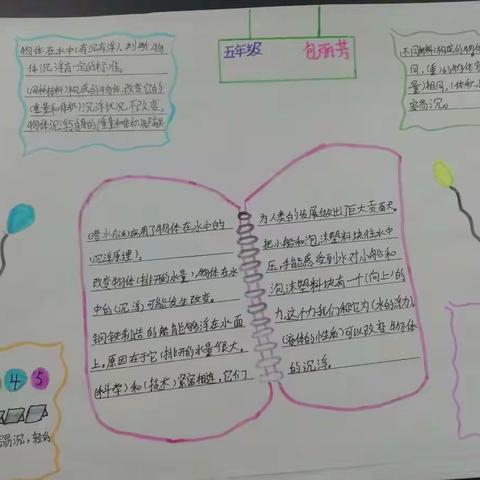 五年级 包丽芳
物体在水中(有沉有浮),判断物
体沉浮有一定的标准。
(同种材料)构成的物体,改变它的
(重量和体积)沉浮状况,不改变。
物体沉浮与自身的(重量和体积)都有关
不同材料)构成的物体
同,(重)的物体容
量)相同,(体积小
容易沉。
(潜水艇)应用了物体在水中的
(沉浮原理)。
改变物体(排开的水量),物体在水
中的(沉浮)可能发生改变。
钢铁制造的船能够浮在水面
上,原因在于它(排开的水量很大。
(科学)和(技术)紧密相连,它们
为人类的发展做出了巨大贡献。
把小船和泡沫塑料块往水中
压,手能感受到水对小船和
泡沫塑料块有一个(向上)的
力,这个力我们称它为(水的浮力)。
(液体的性质)可以改变物体
的沉浮。
4 5
易沉,轻的